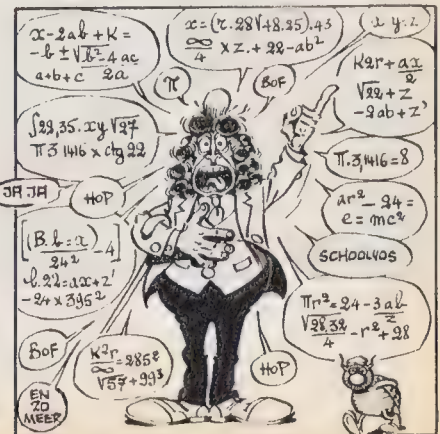 x-2ab+K=
-b ± √b²-4ac
a+b+c 2a
x=(r.28√48.25).43
∞/4 × z.+22-ab²
x y.z
π
BOF
K2r+ax/2
√22+z
-2ab+z'
∫22,35.xy √27
π 3 1416 x ctg 22
π.3,1416=8
JA JA
HOP
ar²-24=
e=mc²
[(B.b=x)/24² -4]
b.22=ax+z'
-24×395²
SCHOOLVOS
πr²=24-3ab/z
√28.32/4 -r²+28
BOF
K²r/∞ =285²
√57+99³
HOP
EN
ZO
MEER